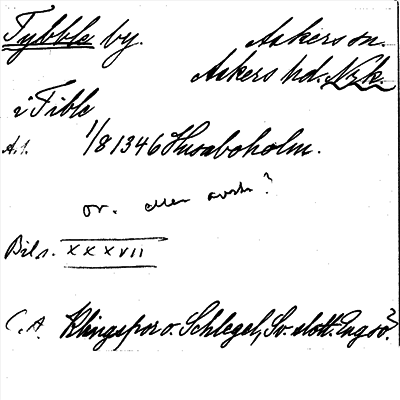 Tybble by. Askers sn.
Askers hd. Nrk.
i Fible
A.t. 1/8 1346 Husaboholm.
or. eller avskr?
Bil s. XXXVII
C.A. Klingspor o. Schlegel, Sv. slott. Engsö?